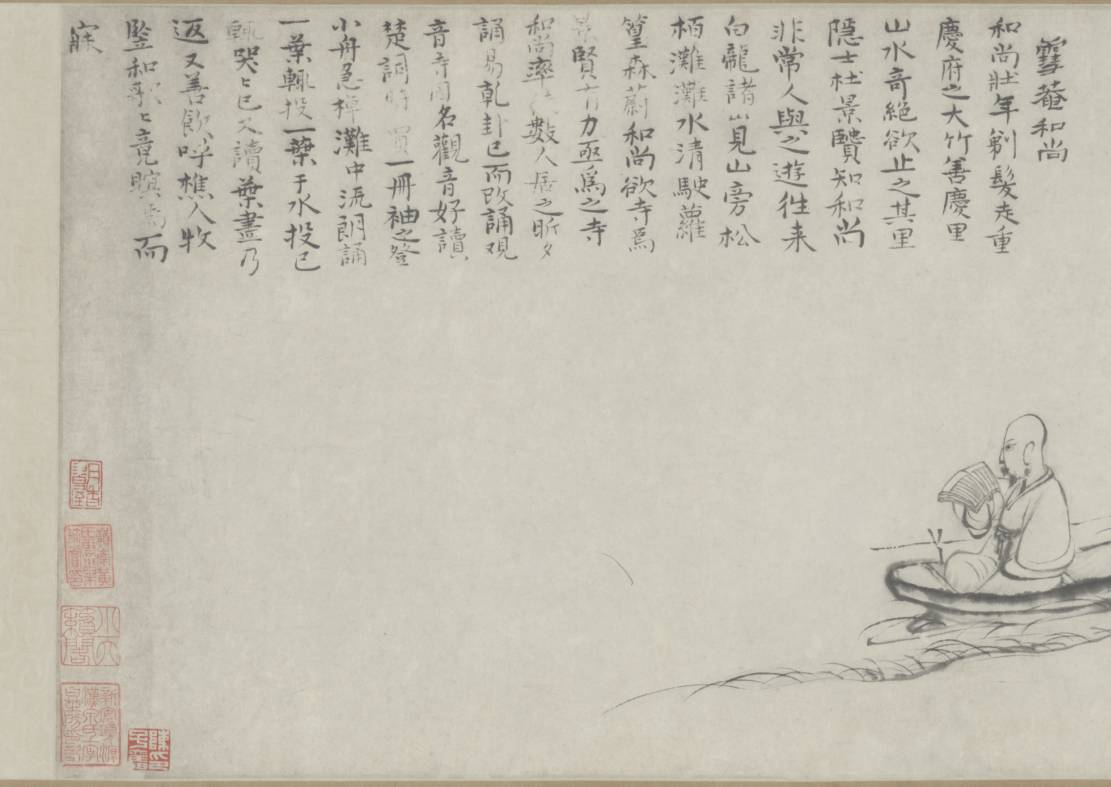 雪菴和尚
和尚壯年剃髮走重
慶府之大竹善慶里
山水奇絕欲止之其里
隱士杜景賢知和尚
非常人與之遊往来
白龍諸山見山旁松
栢灘灘水清駛蘿
篁森蔚和尚欲寺焉
景賢有力亟為之寺
和尚率徒數人居之昕夕
誦易乾卦已而改誦观
音寺因名觀音好讀
楚詞時買一冊袖之登
小舟急棹灘中流朗誦
一葉輒投一葉于水投已
輒哭哭已又讀葉盡乃
返又善飲呼樵人牧
竪和歌歌竟瞑焉而
寐